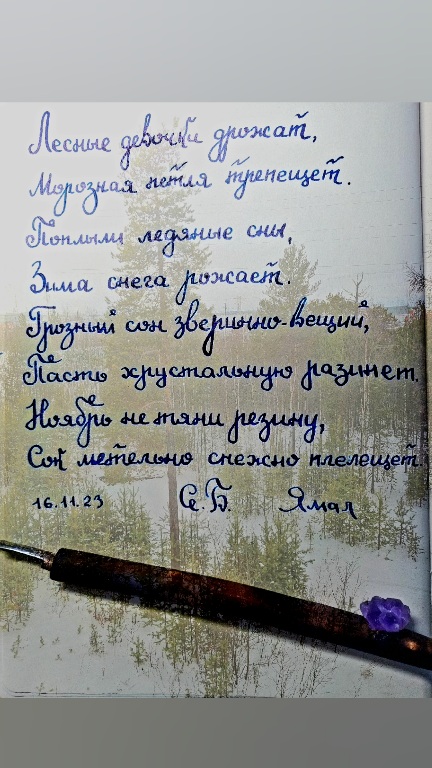 Лесные девочки дрожат,
Морозная петля трепещет.
Поплыли ледяные сны,
Зима снега рожает.
Грозный сон зверинно-вещий,
Пасть хрустальную разинет.
Ноябрь не тяни резину,
Сок метельно снежно плелещет.
16.11.23 С.Б. Ямал